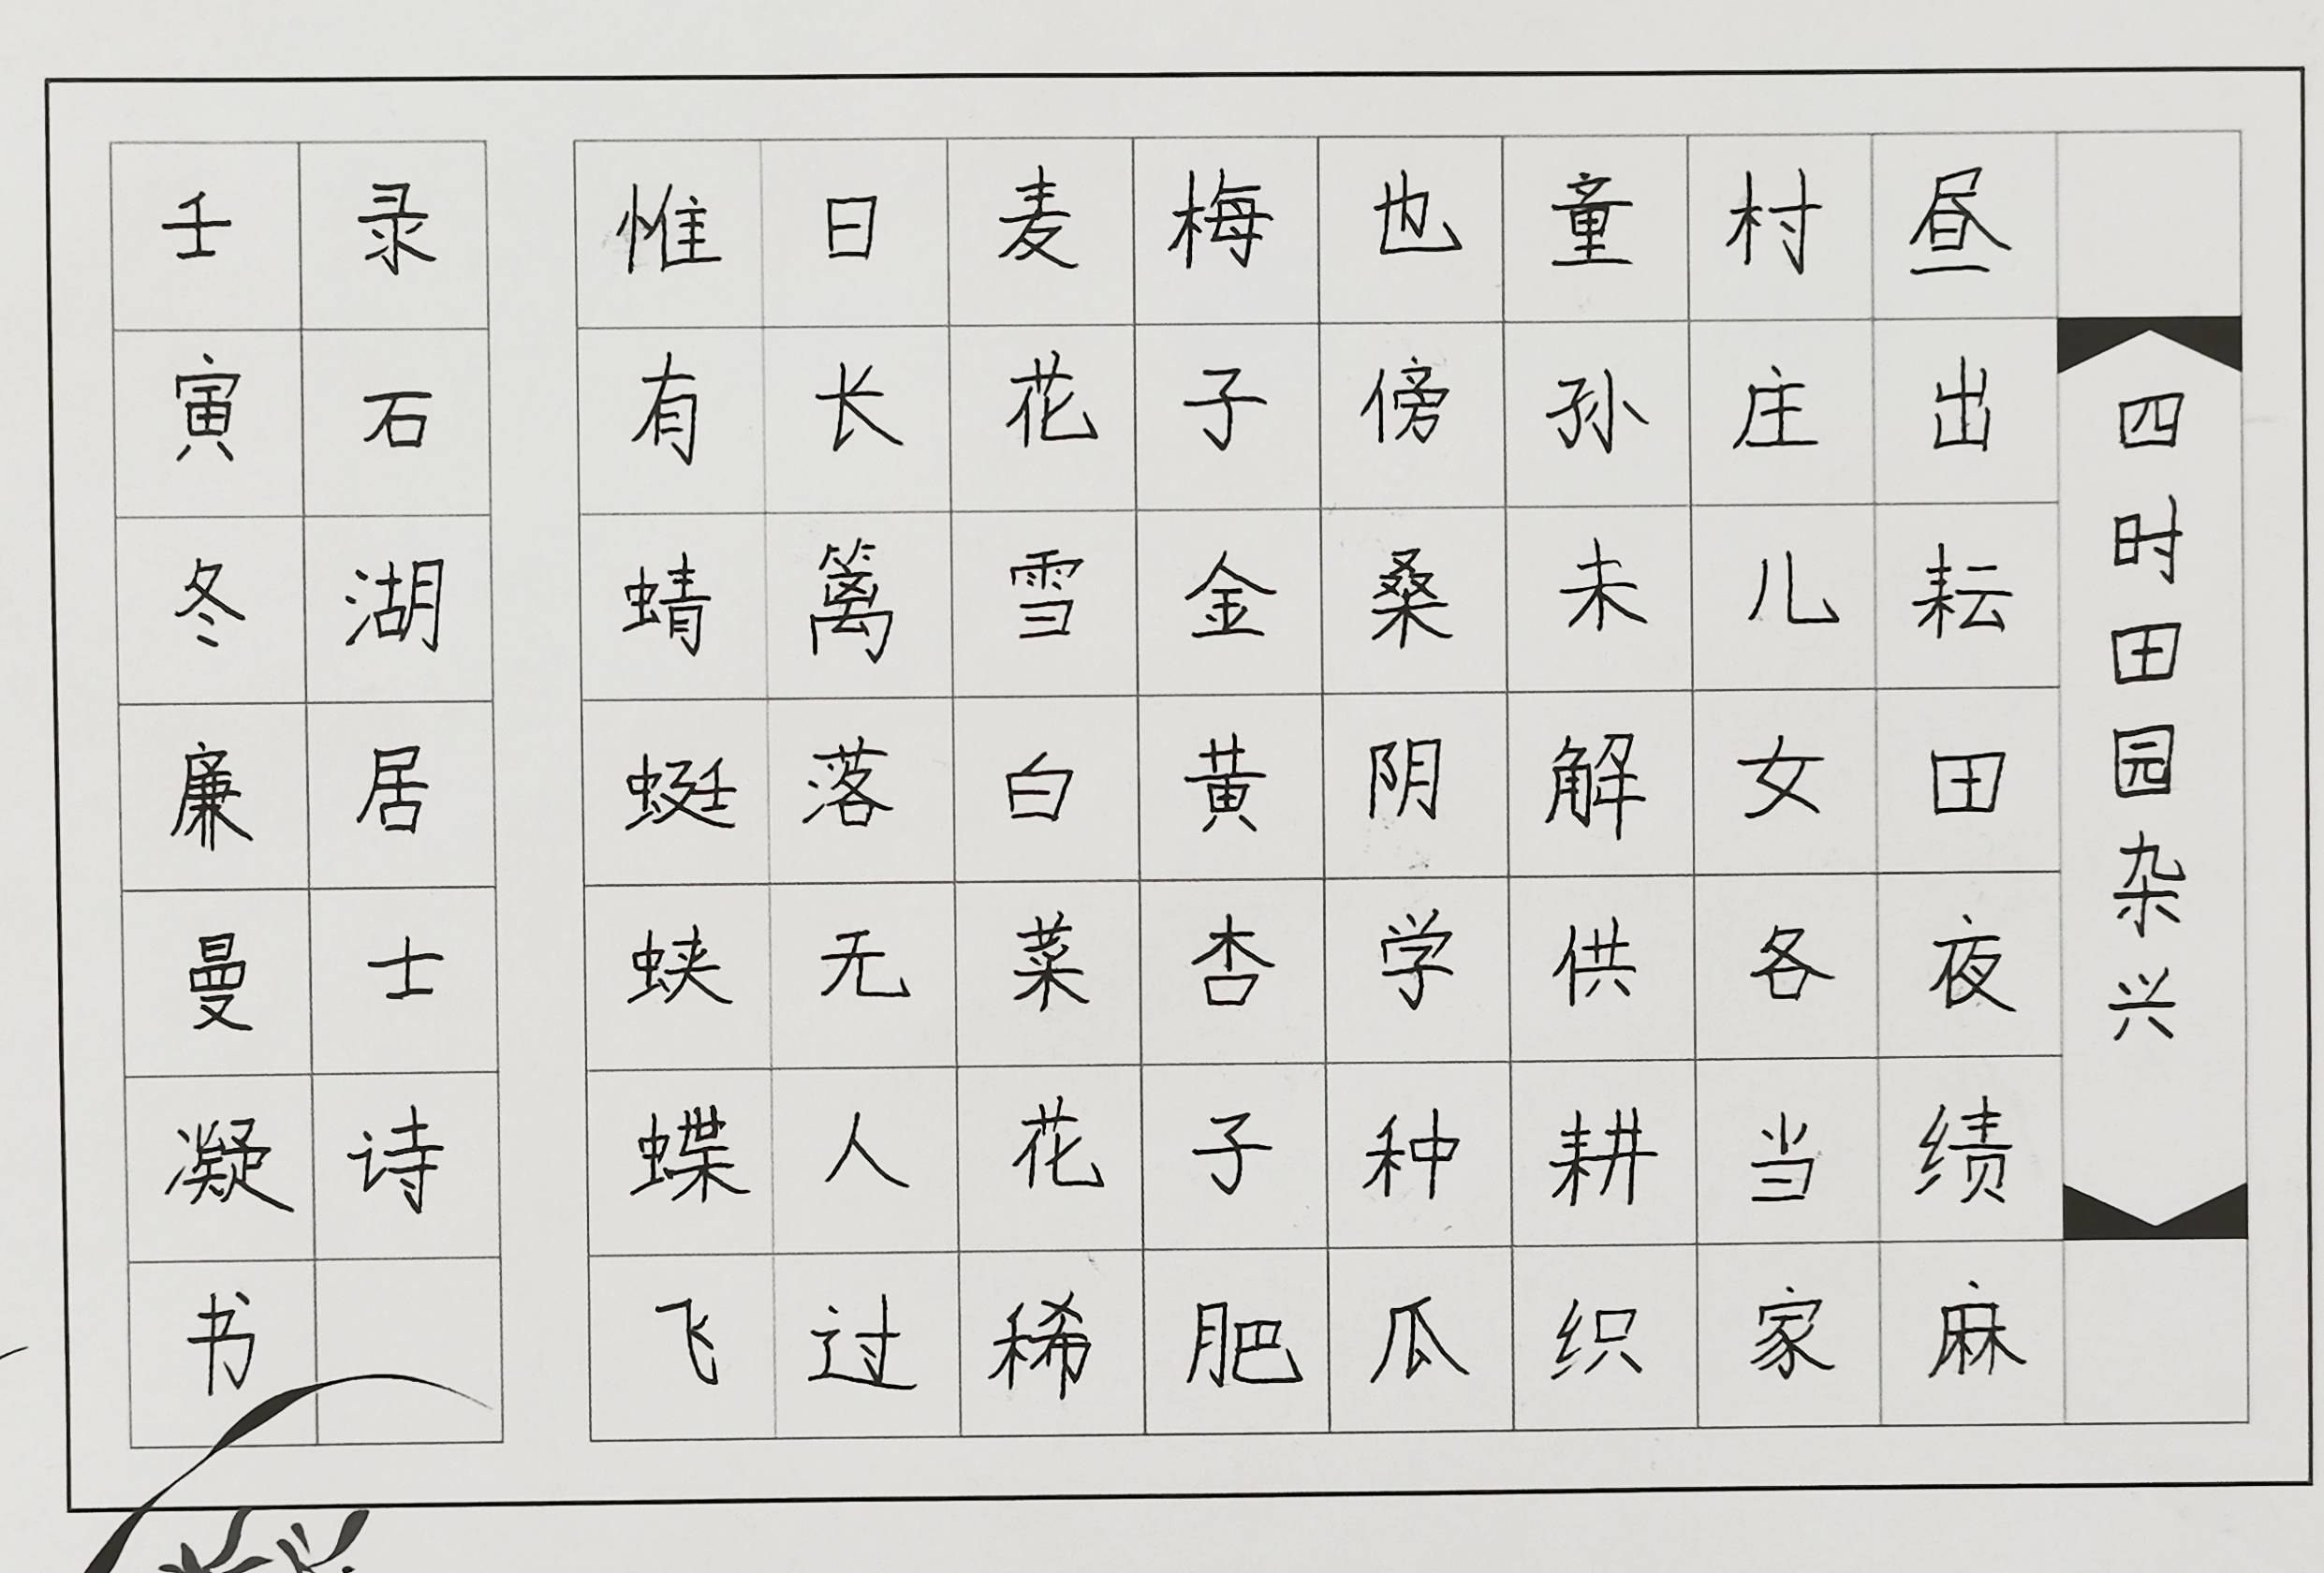 四时田园杂兴
昼出耘田夜绩麻
村庄儿女各当家
童孙未解供耕织
也傍桑阴学种瓜
梅子金黄杏子肥
麦花雪白菜花稀
日长篱落无人过
惟有蜻蜓蛱蝶飞
录石湖居士诗
壬寅冬廉曼凝书